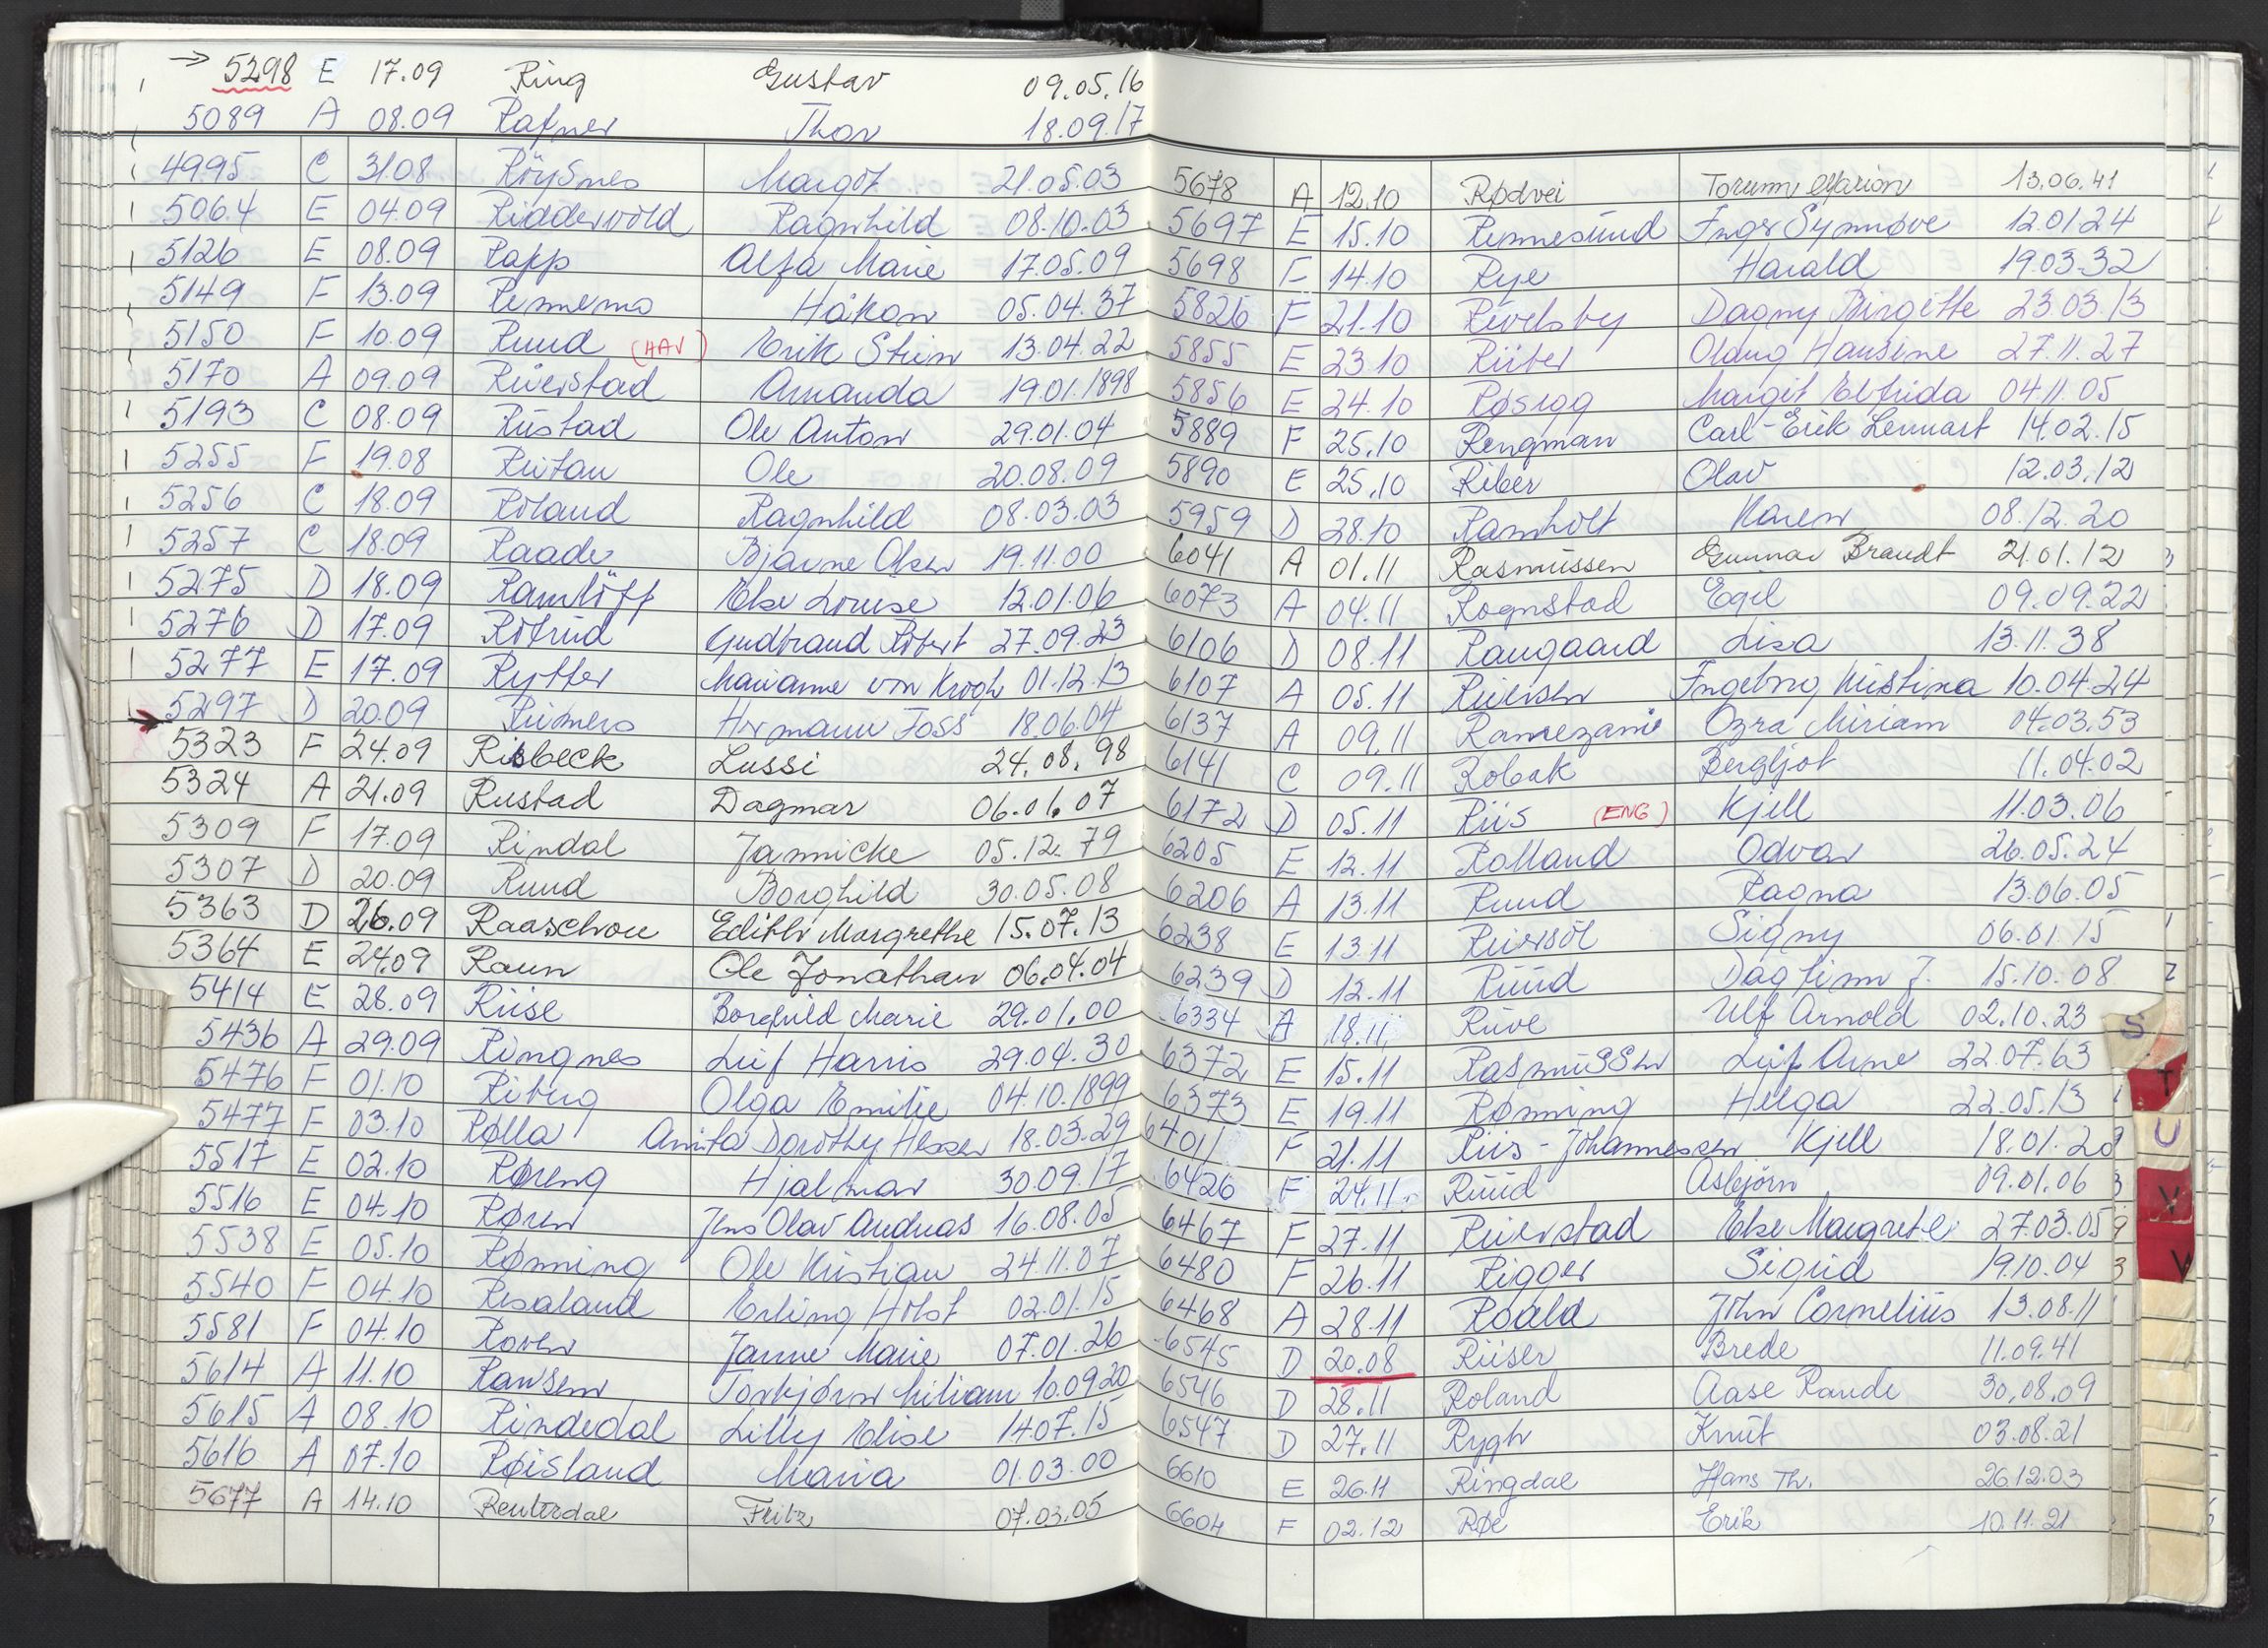 → 5298 E 17.09 Ring Gustav 09.05.16
5089 A 08.09 Rafner Thor 18.09.17
4995 C 31.08 Röysnes Margot 21.05.03
5064 E 04.09 Ridderwold Ragnhild 08.10.03
5126 E 08.09 Rapp Alfa Marie 17.05.09
5149 F 13.09 Håkon 05.04.37
5150 F 10.09 Ruud (HAV) Erik Stein 13.04.22
5170 A 09.09 Riverstad Amanda 19.01.1898
5193 C 08.09 Rustad Ole Anton 29.01.04
5255 F 19.08 Rutan Ole 20.08.09
5256 C 18.09 Röland Ragnhild 08.03.03
5257 C 18.09 Raade Bjarne Olsen 19.11.00
5275 D 18.09 Ramlöff Else Louise 12.01.06
5276 D 17.09 Rötrud Gudbrand Robert 27.09.23
5277 E 17.09 Rytter Marianne von Krogh 01.12.13
5297 D 20.09 Hermann Foss 18.06.04
5323 F 24.09 Risbeck Lussi 24.08.98
5324 A 21.09 Rustad Dagmar 06.01.07
5309 F 17.09 Rindal Jannicke 05.12.79
5307 D 20.09 Ruud Borghild 30.05.08
5363 D 26.09 Raaschou Edith Margrethe 15.07.13
5364 E 24.09 Raun Ole Jonathan 06.04.04
5414 E 28.09 Riise Borghild Marie 29.01.00
5436 A 29.09 Ringnes Leif Harris 29.04.30
5476 F 01.10 Riberg Olga Emilie 04.10.1899
5477 F 03.10 Rølla Anita Dorothy 18.03.29
5517 E 02.10 Røreng Hjalmar 30.09.17
5516 E 04.10 Røren Jens Olav Andreas 16.08.05
5538 E 05.10 Rønning Ole Kristian 24.11.07
5540 F 04.10 Resaland Erling Holst 02.01.15
5581 F 04.10 Roven Janne Marie 07.01.26
5614 A 11.10 Ransen Torkjørn Miliam 10.09.20
5615 A 08.10 Rindedal Lilly Elise 14.07.15
5616 A 07.10 Røisland Maria 01.03.00
5677 A 14.10 Renterdal Fritz 07.03.05
5678 A 12.10 Rødvei Torunn Marion 13.06.41
5697 E 15.10 Rennesund Inger Synnøve 12.01.24
5698 F 14.10 Rye Harald 19.03.32
5826 F 21.10 Rivelsby Dagny Birgitte 23.03.13
5855 E 23.10 Rüber Oldug Hansine 27.11.27
5856 E 24.10 Røsegg Margit Elfrida 04.11.05
5889 F 25.10 Rengman Carl-Erik Lennart 14.02.15
5890 E 25.10 Riber Olav 12.03.12
5959 D 28.10 Ramholt Karen 08.12.20
6041 A 01.11 Rasmussen Gunnar Brandt 21.01.12
6073 A 04.11 Rognstad Egil 09.09.22
6106 D 08.11 Raugaard Lisa 13.11.38
6107 A 05.11 Riversen Ingeborg Kristina 10.04.24
6137 A 09.11 Ramezani Ozra Miriam 04.03.53
6141 C 09.11 Robak Bergljot 11.04.02
6172 D 05.11 Riis (ENG) Kjell 11.03.06
6205 E 12.11 Rolland Odvar 26.05.24
6206 A 13.11 Ruud Ragna 13.06.05
6238 E 13.11 Signy 06.01.15
6239 D 12.11 Ruud Dagfinn J. 15.10.08
6334 A 18.11 Rüve Ulf Arnold 02.10.23
6372 E 15.11 Rasmussen Leif Arne 22.07.63
6373 E 19.11 Rønning Helga 22.05.13
6401 F 21.11 Riis-Johannessen Kjell 18.01.20
6426 F 24.11 Ruud Asbjørn 09.01.06
6467 F 27.11 Riverstad Else Margrete 27.03.05
6480 F 26.11 Rigger Sigrid 19.10.04
6468 A 28.11 Roald John Cornelius 13.08.11
6545 D 20.08 Riiser Brede 11.09.41
6546 D 28.11 Roland Aase Rande 30.08.09
6547 D 27.11 Rygh Knut 03.08.21
6610 E 26.11 Ringdal Hans Th. 26.12.03
6604 F 02.12 Røe Erik 10.11.21
S
T
U
V